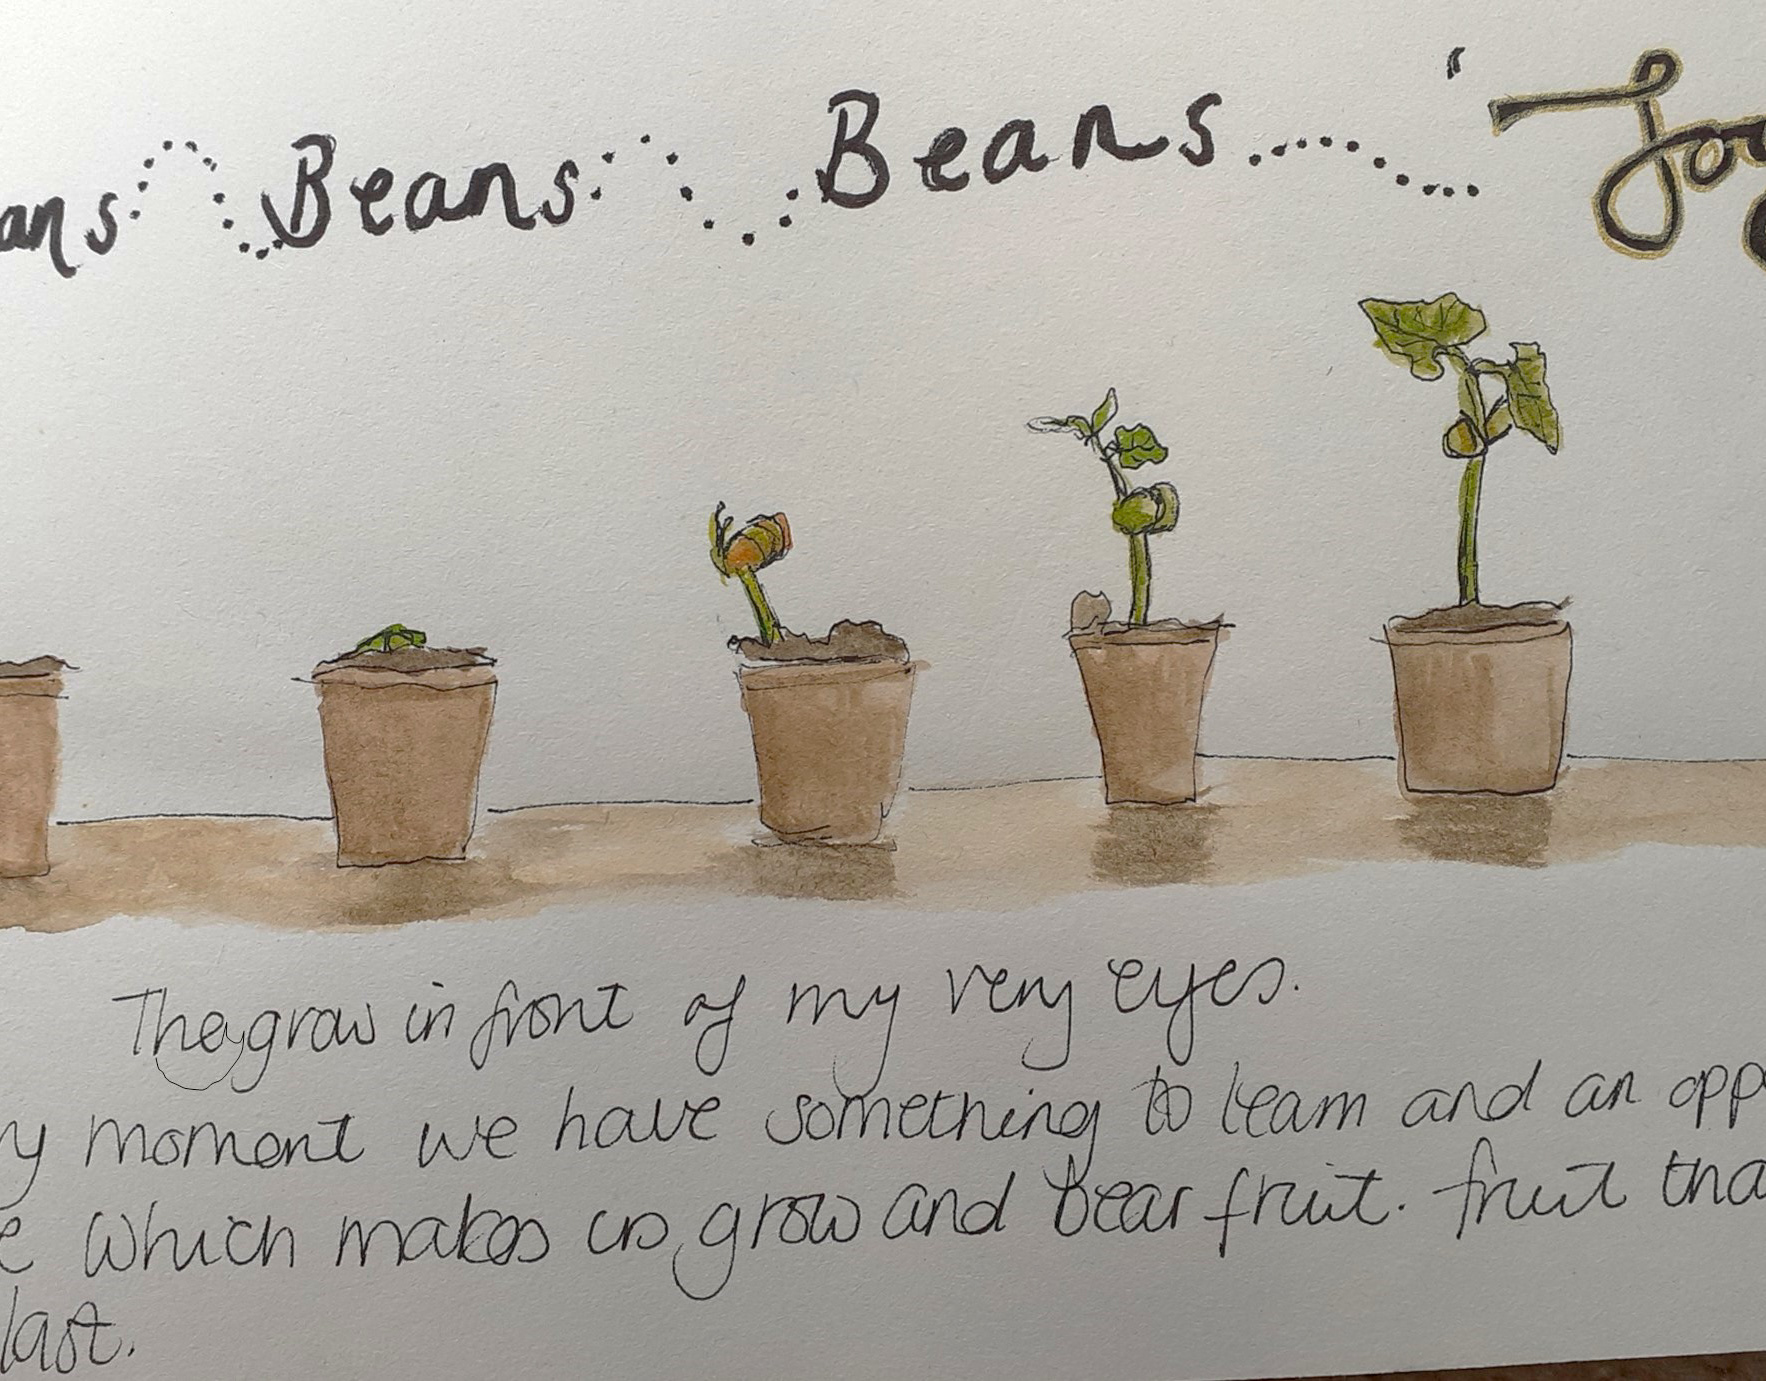 ans Beans Beans ' Joy
They grow in front of my very eyes.
y moment we have something to learn and an opp
e which makes us grow and bear fruit. fruit tha
last.